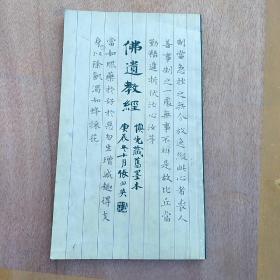 制當急挫之無令放逸縱此心者喪人
善事制之一處無事不辨是故比丘當
勤精進折伏汝心汝等
佛遺教經
光藏舊墨本
庚辰年十月張
當如服藥於好於惡勿生增減趣得支
身以除飢渴如蜂採花